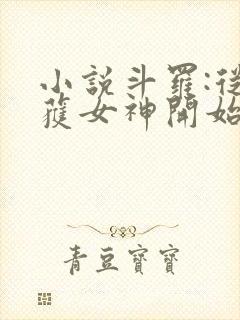 小說斗羅:從
獲女神開始
青豆寶寶